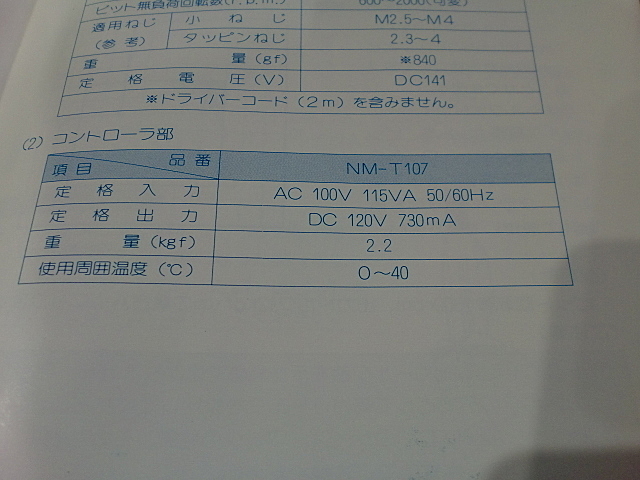 ビット無負荷回転数(r.p.m.) 600〜2000(可変)
適用ねじ 小ねじ M2.5〜M4
(参考) タッピンねじ 2.3〜4
重量(gf) ※840
定格電圧(V) DC141
※ドライバーコード(2m)を含みません。
(2) コントローラ部
項目 品番 NM-T107
定格入力 AC 100V 115VA 50/60Hz
定格出力 DC 120V 730mA
重量(kgf) 2.2
使用周囲温度(℃) 0〜40